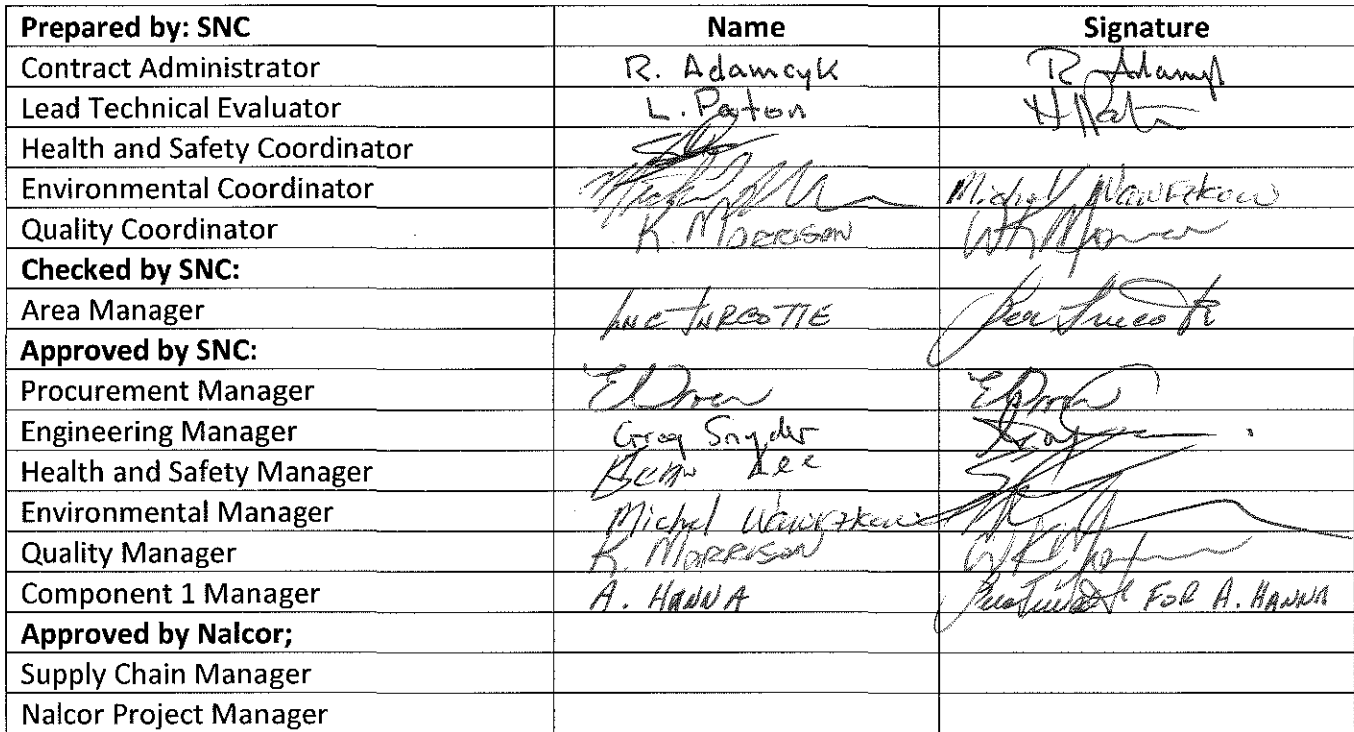 Prepared by: SNC Name Signature
Contract Administrator R. Adamcyk R Adamyk
Lead Technical Evaluator L. Paton
Health and Safety Coordinator
Environmental Coordinator Michel Wawrzkow
Quality Coordinator K. MORRISON
Checked by SNC:
Area Manager LUC TURCOTTE
Approved by SNC:
Procurement Manager
Engineering Manager Greg Snyder
Health and Safety Manager Lee
Environmental Manager Michel Wawrzkow
Quality Manager K. MORRISON
Component 1 Manager A. HANNA FOR A. HANNA
Approved by Nalcor;
Supply Chain Manager
Nalcor Project Manager